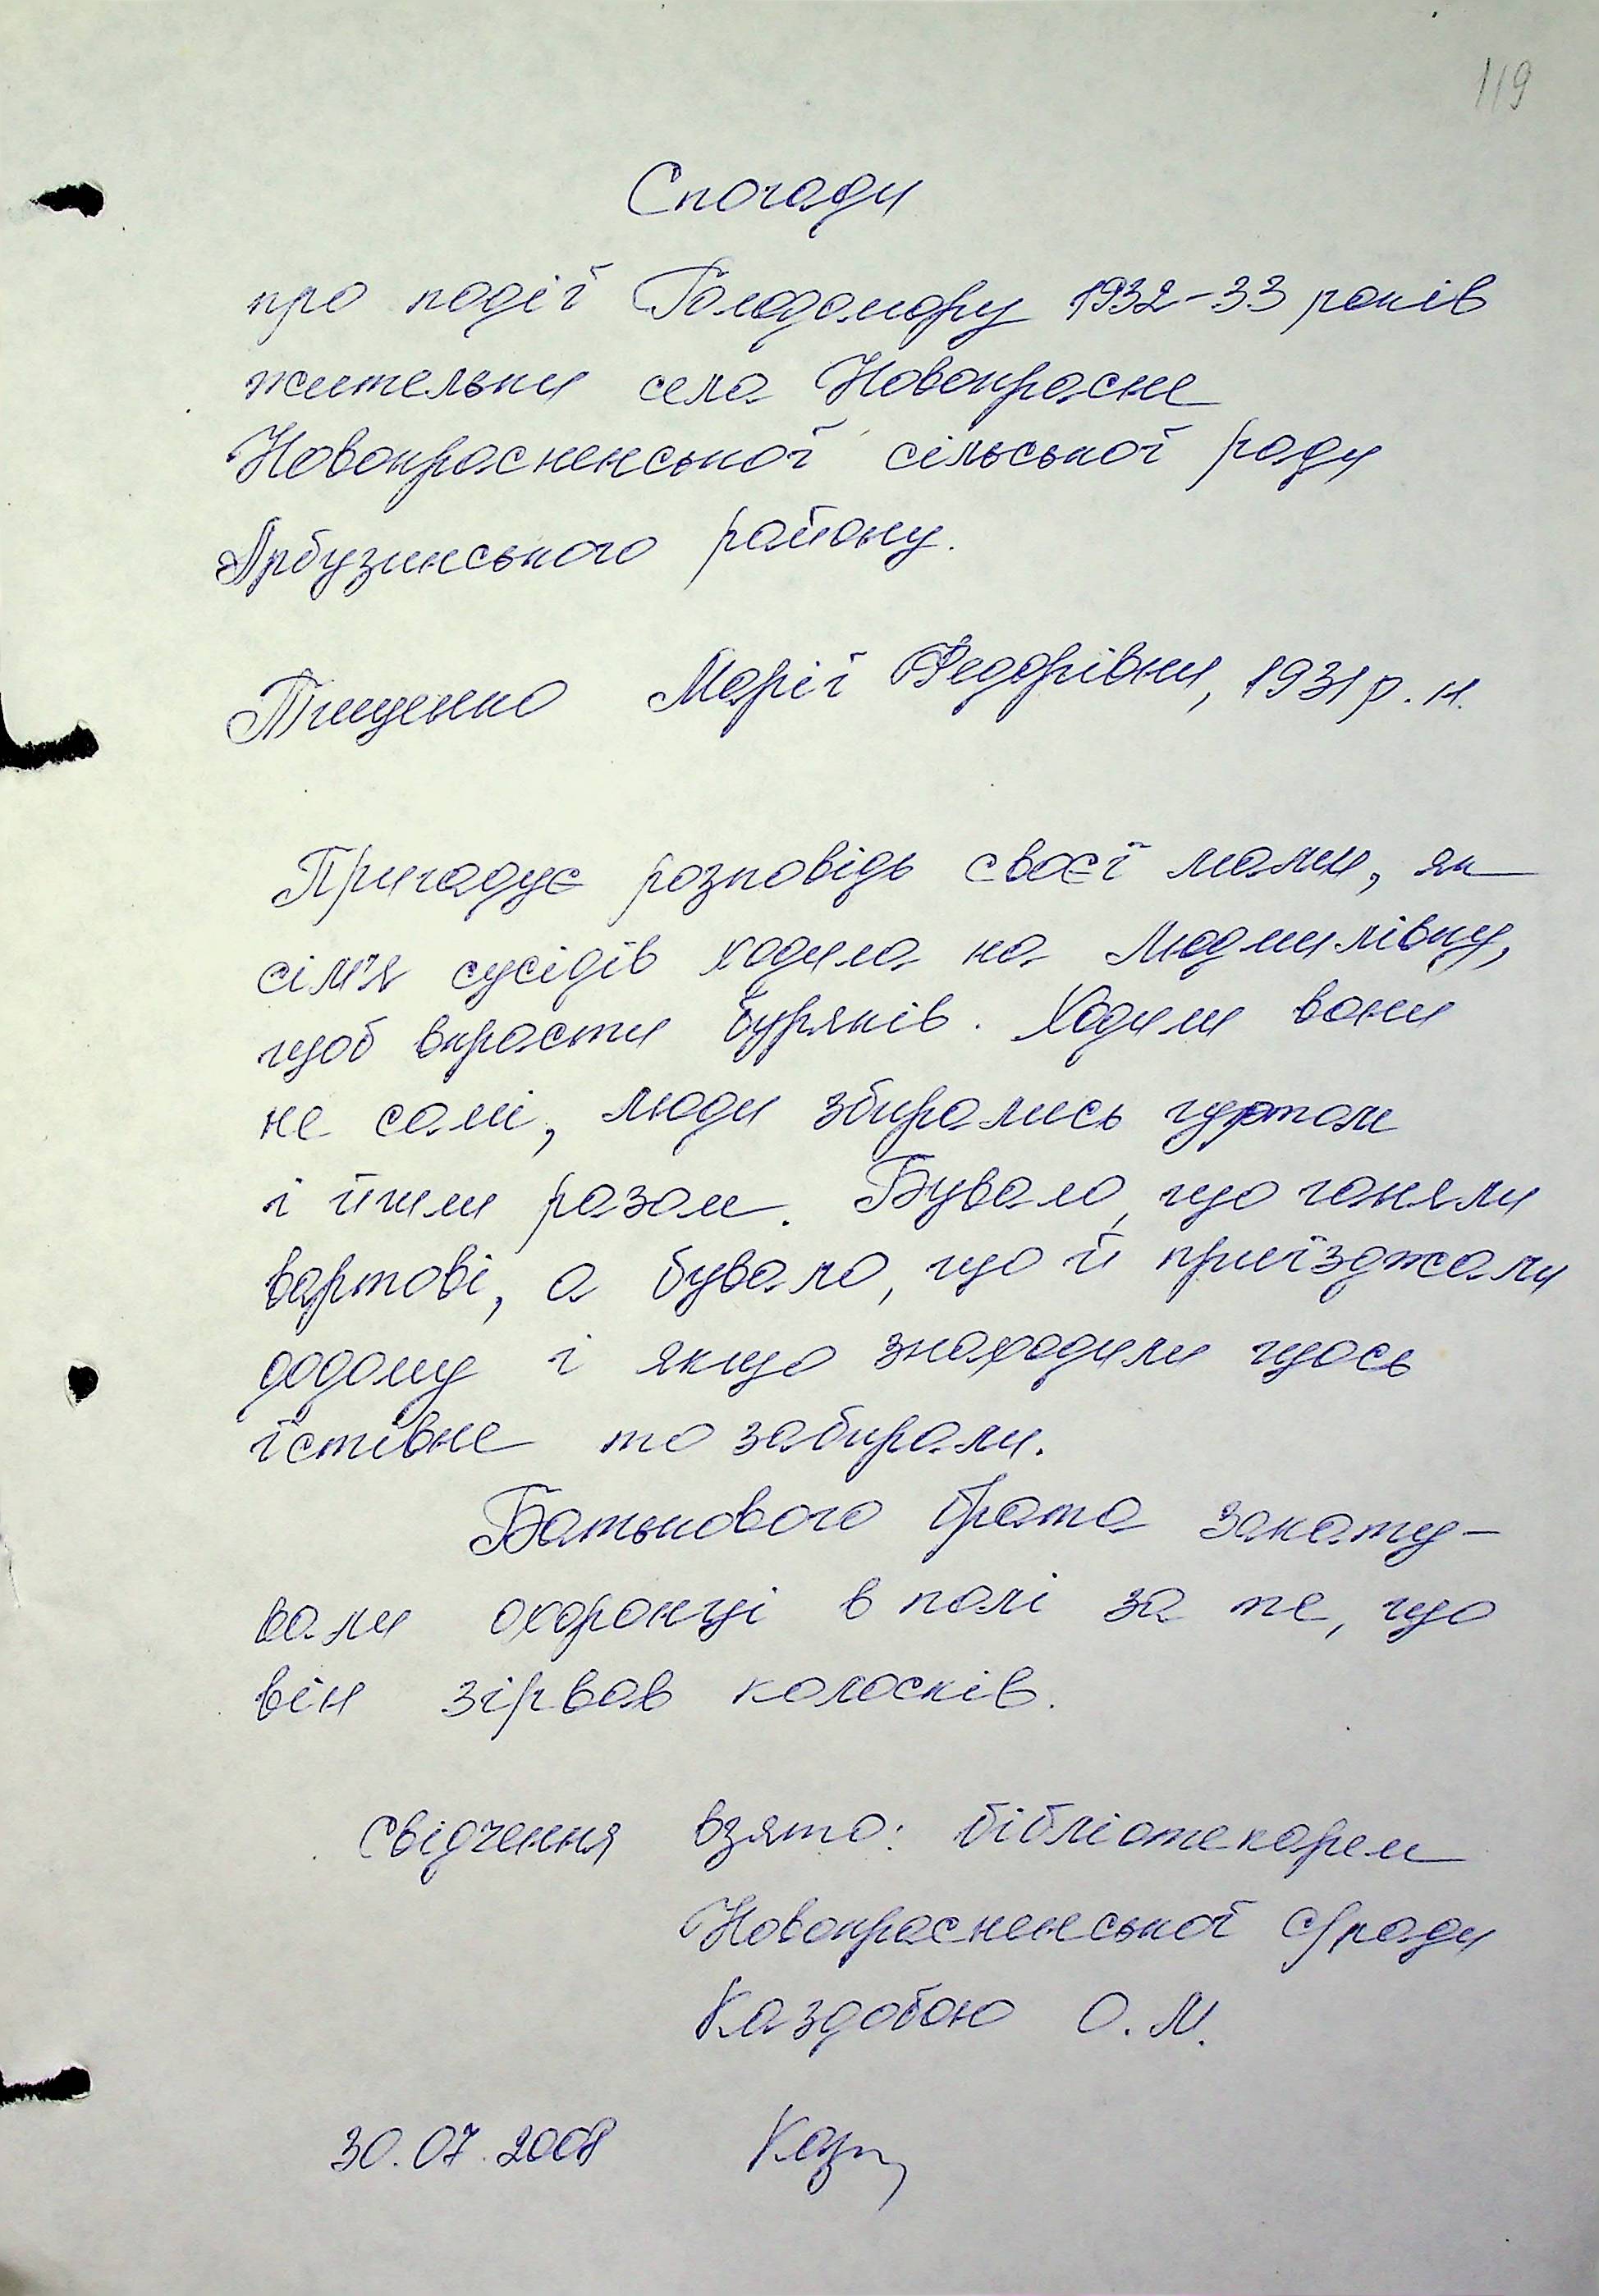 119
Спогади
про події Голодомору 1932-33 років
жительки села Новокрасне
Новокрасненської сільської ради
Арбузинського району.
Тищенко Марії Федорівни, 1931 р. н.
Пригадує розповідь своєї мами, як
сім'я сусідів ходила на Людмилівку,
щоб вкрасти буряків. Ходили вони
не самі, люди збирались гуртом
і йшли разом. Бувало, що ганяли
вартові, а бувало, що й приїзджали
додому і якщо знаходили щось
їстівне то забирали.
Батькового брата закату-
вали охоронці в полі за те, що
він зірвав колосків.
Свідчення взято: бібліотекарем
Новокрасненської с/ради
Каздобою О. М.
30.07.2008